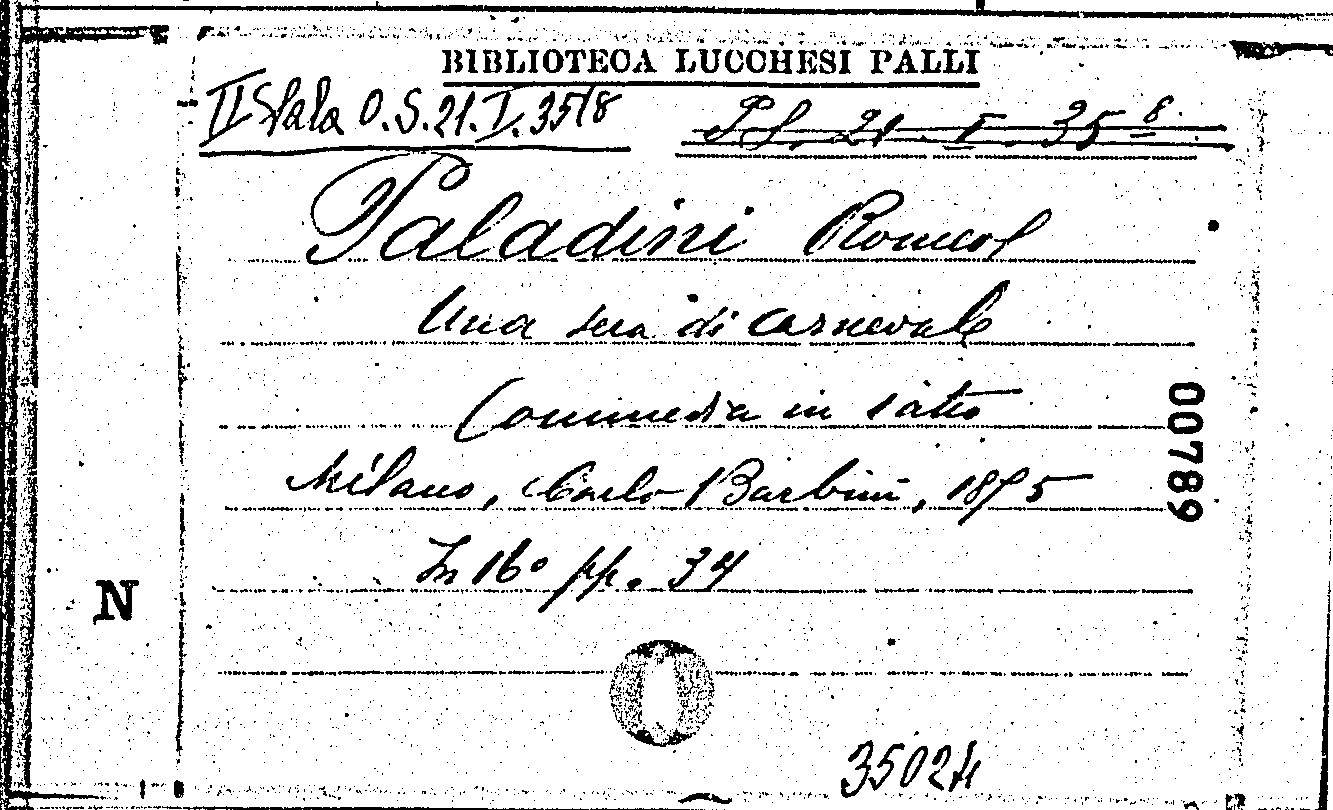 BIBLIOTECA LUCCHESI PALLI
II Sala O.S.21.I.35/8
P.S. 21 I. 35 8.
Paladini Romeo
Una sera di carnevale
Commedia in 1 atto
Milano, Carlo Barbini, 1875
In 16° pp. 34
00789
N
35024